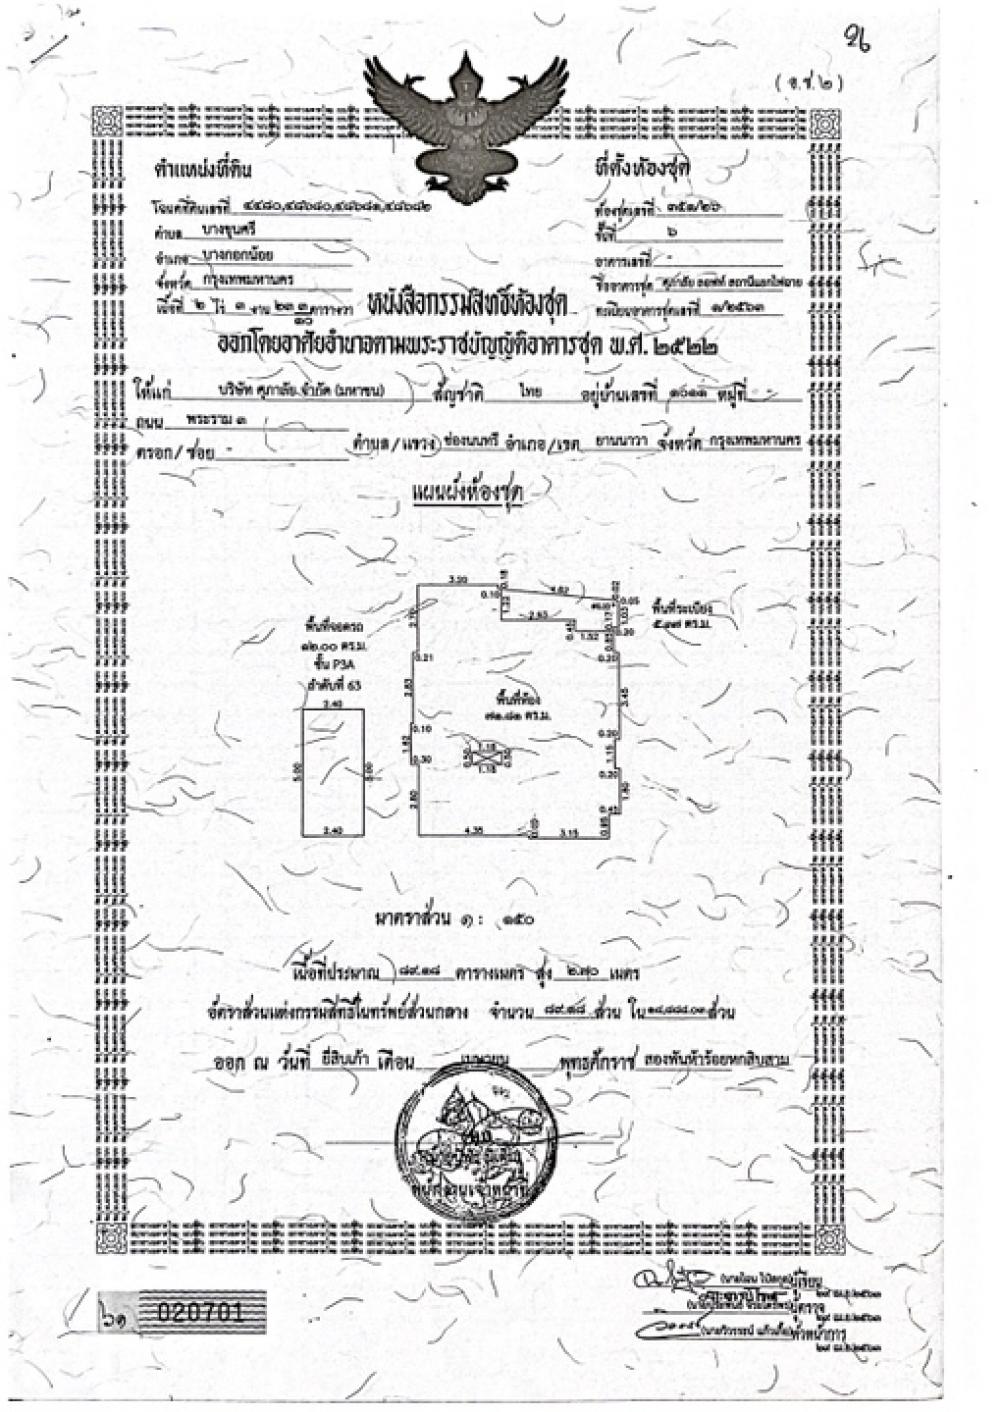 (อ.ช.๒)
ตำแหน่งที่ดิน
ที่ตั้งห้องชุด
โฉนดที่ดินเลขที่ ๔๔๘๐,๔๘๖๘๐,๔๘๖๘๑,๔๘๖๘๒
ห้องชุดเลขที่ ๓๕๑/๒๖
ตำบล บางขุนศรี
ชั้นที่ ๖
อำเภอ บางกอกน้อย
อาคารเลขที่ -
จังหวัด กรุงเทพมหานคร
ชื่ออาคารชุด ศุภาลัย ลอฟท์ สถานีแยกไฟฉาย
เนื้อที่ ๒ ไร่ ๓ งาน ตารางวา
ทะเบียนอาคารชุดเลขที่ ๑/๒๕๖๓
หนังสือกรรมสิทธิ์ห้องชุด
ออกโดยอาศัยอำนาจตามพระราชบัญญัติอาคารชุด พ.ศ. ๒๕๒๒
ให้แก่ บริษัท ศุภาลัย จำกัด (มหาชน) สัญชาติ ไทย อยู่บ้านเลขที่ ๑๐๑๑ หมู่ที่ -
ถนน พระราม ๓
ตรอก/ซอย - ตำบล/แขวง ช่องนนทรี อำเภอ/เขต ยานนาวา จังหวัด กรุงเทพมหานคร
แผนผังห้องชุด
3.20
0.18
4.62
0.02
0.10
0.05
1.22
2.53
0.17
1.03
0.45
1.52
0.20
พื้นที่ระเบียง
๕.๓๗ ตร.ม.
พื้นที่จอดรถ
๑๒.๐๐ ตร.ม.
ชั้น P3A
ลำดับที่ 63
2.40
5.00
5.00
2.40
0.21
0.20
2.83
3.45
พื้นที่ห้อง
๗๑.๘๑ ตร.ม.
0.10
0.20
1.82
1.18
0.50
0.50
1.18
1.15
0.30
0.20
2.80
1.80
0.45
0.95
4.35
3.15
มาตราส่วน ๑ : ๑๕๐
เนื้อที่ประมาณ ๘๙.๑๘ ตารางเมตร สูง ๒.๗๐ เมตร
อัตราส่วนแห่งกรรมสิทธิ์ในทรัพย์ส่วนกลาง จำนวน ๘๙.๑๘ ส่วน ใน ส่วน
ออก ณ วันที่ ยี่สิบเก้า เดือน เมษายน พุทธศักราช สองพันห้าร้อยหกสิบสาม
พนักงานเจ้าหน้าที่
ผู้เขียน
๒๙ เม.ย.๒๕๖๓
ผู้ตรวจ
๒๙ เม.ย.๒๕๖๓
หัวหน้าการ
๒๙ เม.ย.๒๕๖๓
020701